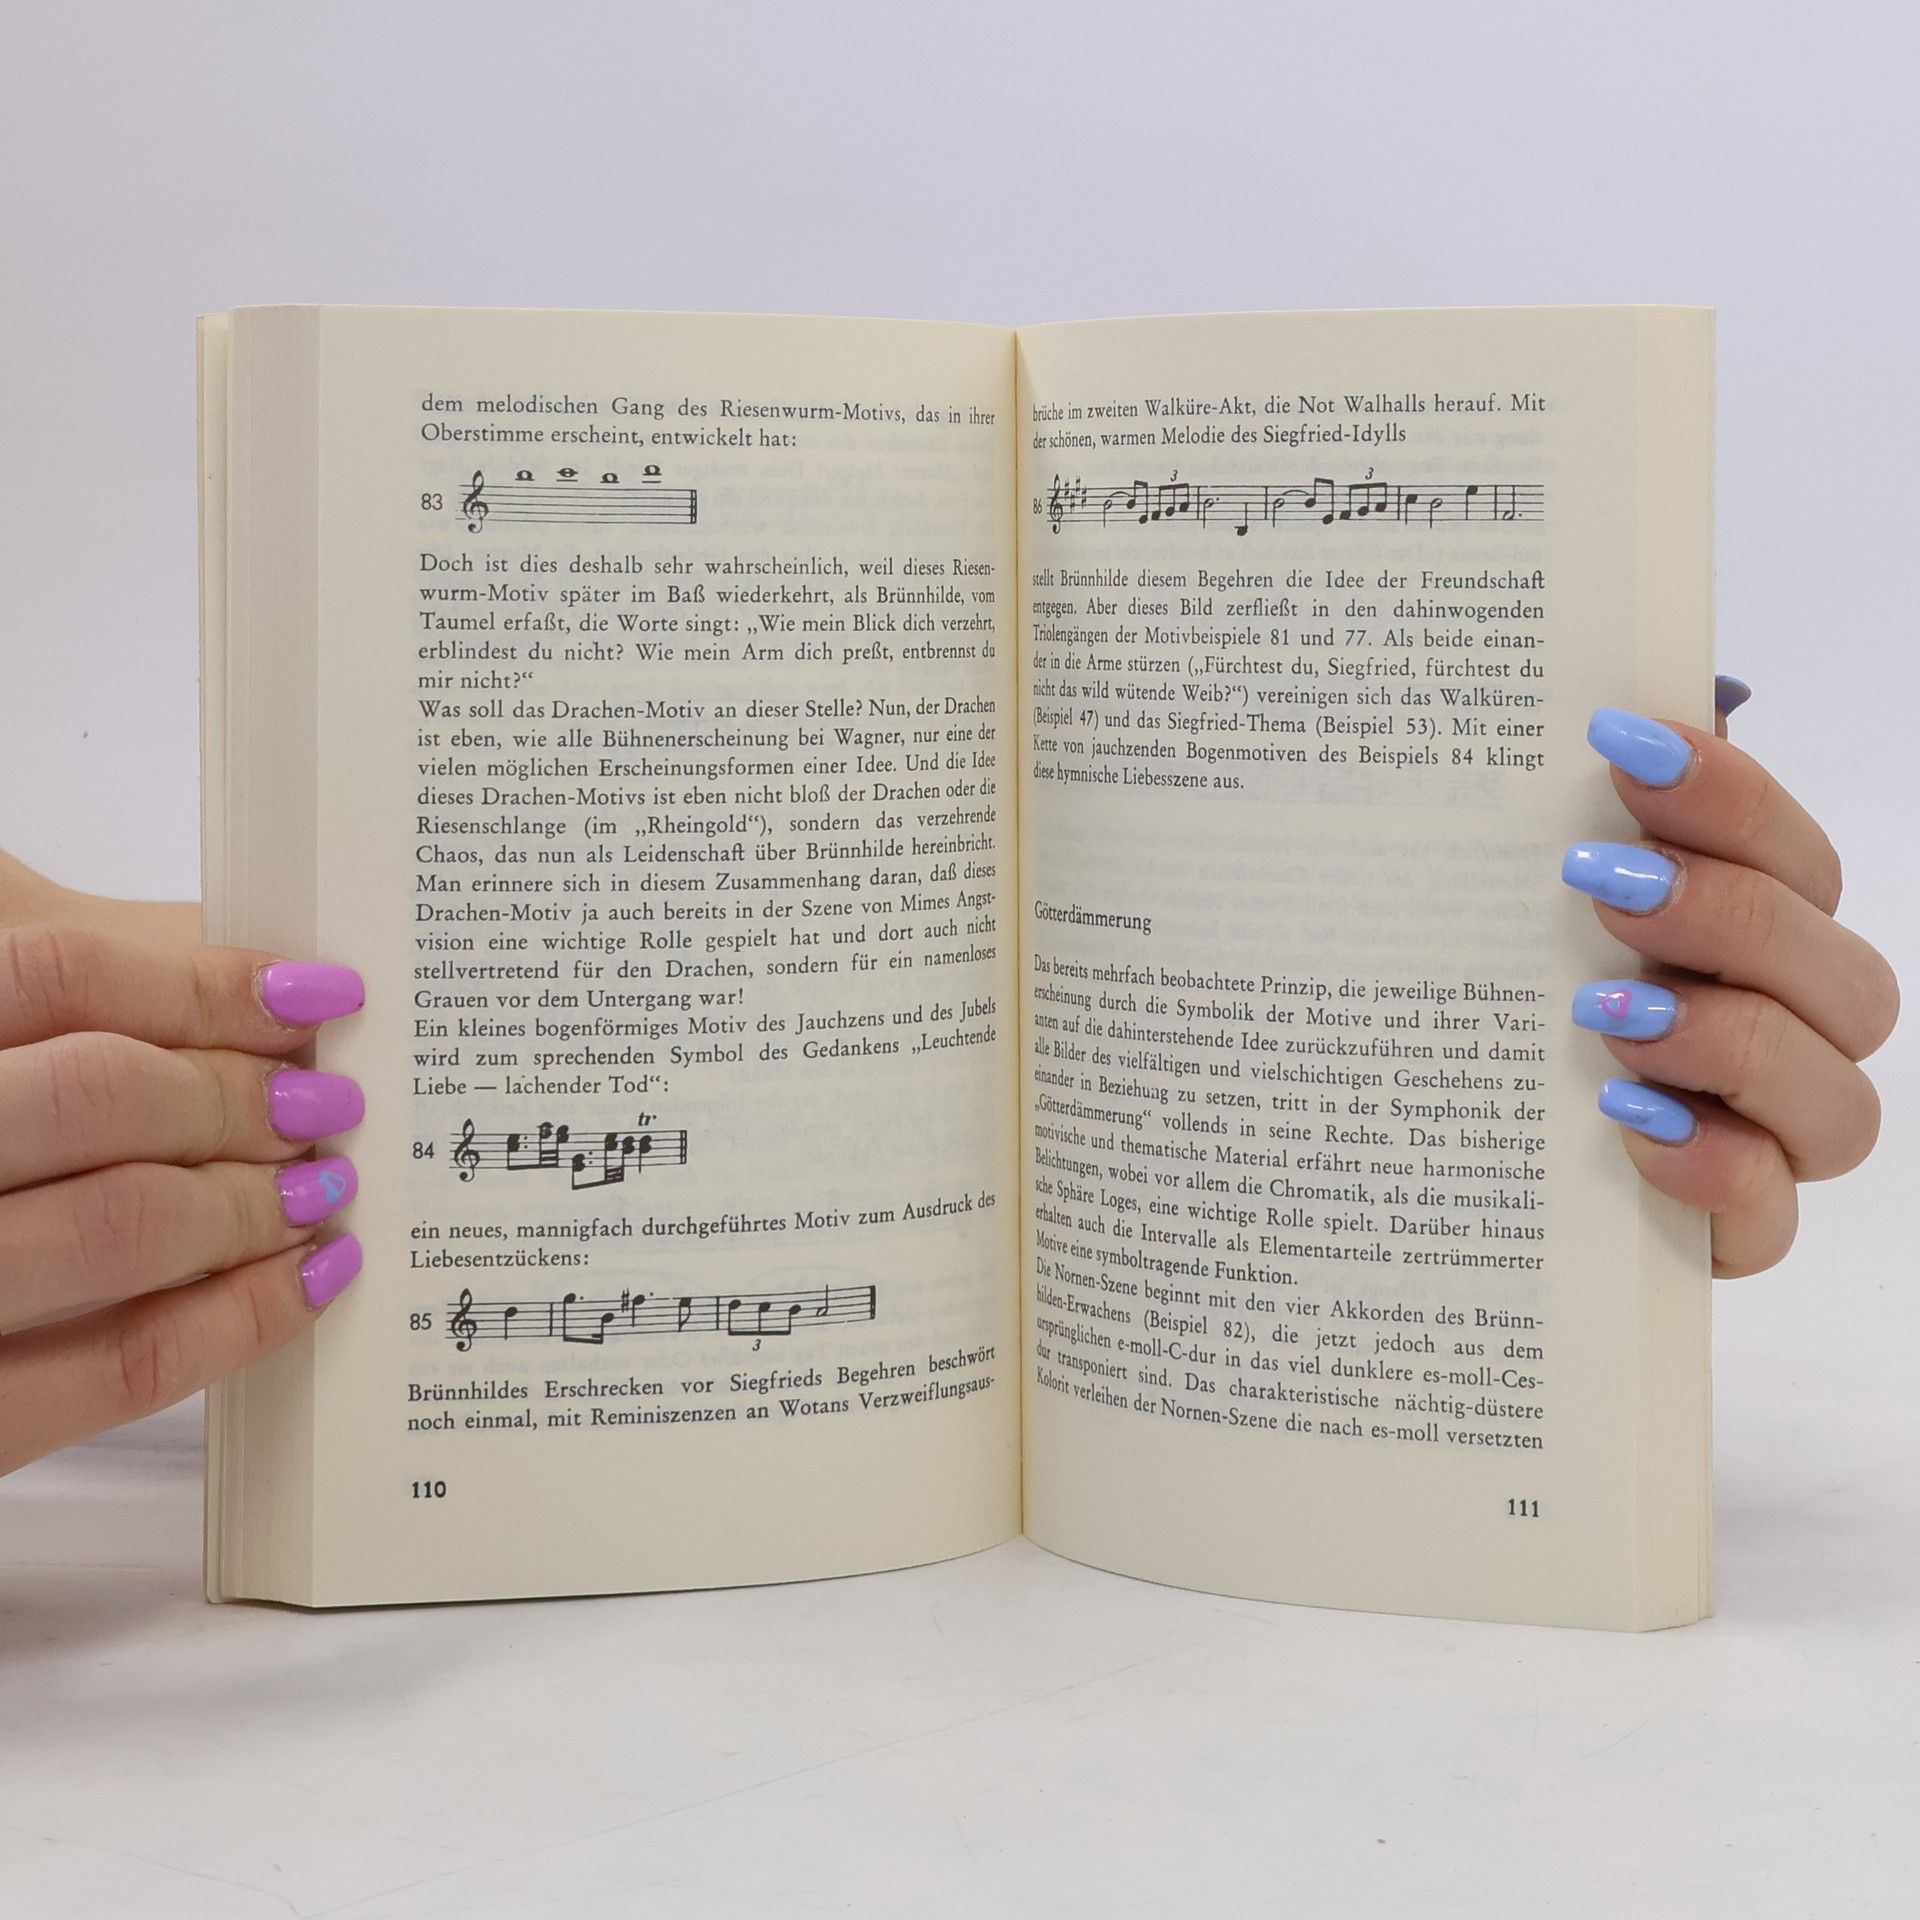 dem melodischen Gang des Riesenwurm-Motivs, das in ihrer
Oberstimme erscheint, entwickelt hat:
83
Doch ist dies deshalb sehr wahrscheinlich, weil dieses Riesen-
wurm-Motiv später im Baß wiederkehrt, als Brünnhilde, vom
Taumel erfaßt, die Worte singt: „Wie mein Blick dich verzehrt,
erblindest du nicht? Wie mein Arm dich preßt, entbrennst du
mir nicht?“
Was soll das Drachen-Motiv an dieser Stelle? Nun, der Drachen
ist eben, wie alle Bühnenerscheinung bei Wagner, nur eine der
vielen möglichen Erscheinungsformen einer Idee. Und die Idee
dieses Drachen-Motivs ist eben nicht bloß der Drachen oder die
Riesenschlange (im „Rheingold“), sondern das verzehrende
Chaos, das nun als Leidenschaft über Brünnhilde hereinbricht.
Man erinnere sich in diesem Zusammenhang daran, daß dieses
Drachen-Motiv ja auch bereits in der Szene von Mimes Angst-
vision eine wichtige Rolle gespielt hat und dort auch nicht
stellvertretend für den Drachen, sondern für ein namenloses
Grauen vor dem Untergang war!
Ein kleines bogenförmiges Motiv des Jauchzens und des Jubels
wird zum sprechenden Symbol des Gedankens „Leuchtende
Liebe — lachender Tod“:
tr
84
ein neues, mannigfach durchgeführtes Motiv zum Ausdruck des
Liebesentzückens:
85
3
Brünnhildes Erschrecken vor Siegfrieds Begehren beschwört
noch einmal, mit Reminiszenzen an Wotans Verzweiflungsaus-
110
brüche im zweiten Walküre-Akt, die Not Walhalls herauf. Mit
der schönen, warmen Melodie des Siegfried-Idylls
3 3
86
stellt Brünnhilde diesem Begehren die Idee der Freundschaft
entgegen. Aber dieses Bild zerfließt in den dahinwogenden
Triolengängen der Motivbeispiele 81 und 77. Als beide einan-
der in die Arme stürzen („Fürchtest du, Siegfried, fürchtest du
nicht das wild wütende Weib?“) vereinigen sich das Walküren-
(Beispiel 47) und das Siegfried-Thema (Beispiel 53). Mit einer
Kette von jauchzenden Bogenmotiven des Beispiels 84 klingt
diese hymnische Liebesszene aus.
Götterdämmerung
Das bereits mehrfach beobachtete Prinzip, die jeweilige Bühnen-
erscheinung durch die Symbolik der Motive und ihrer Vari-
anten auf die dahinterstehende Idee zurückzuführen und damit
alle Bilder des vielfältigen und vielschichtigen Geschehens zu-
einander in Beziehung zu setzen, tritt in der Symphonik der
„Götterdämmerung“ vollends in seine Rechte. Das bisherige
motivische und thematische Material erfährt neue harmonische
Belichtungen, wobei vor allem die Chromatik, als die musikali-
sche Sphäre Loges, eine wichtige Rolle spielt. Darüber hinaus
erhalten auch die Intervalle als Elementarteile zertrümmerter
Motive eine symboltragende Funktion.
Die Nornen-Szene beginnt mit den vier Akkorden des Brünn-
hilden-Erwachens (Beispiel 82), die jetzt jedoch aus dem
ursprünglichen e-moll-C-dur in das viel dunklere es-moll-Ces-
dur transponiert sind. Das charakteristische nächtig-düstere
Kolorit verleihen der Nornen-Szene die nach es-moll versetzten
111